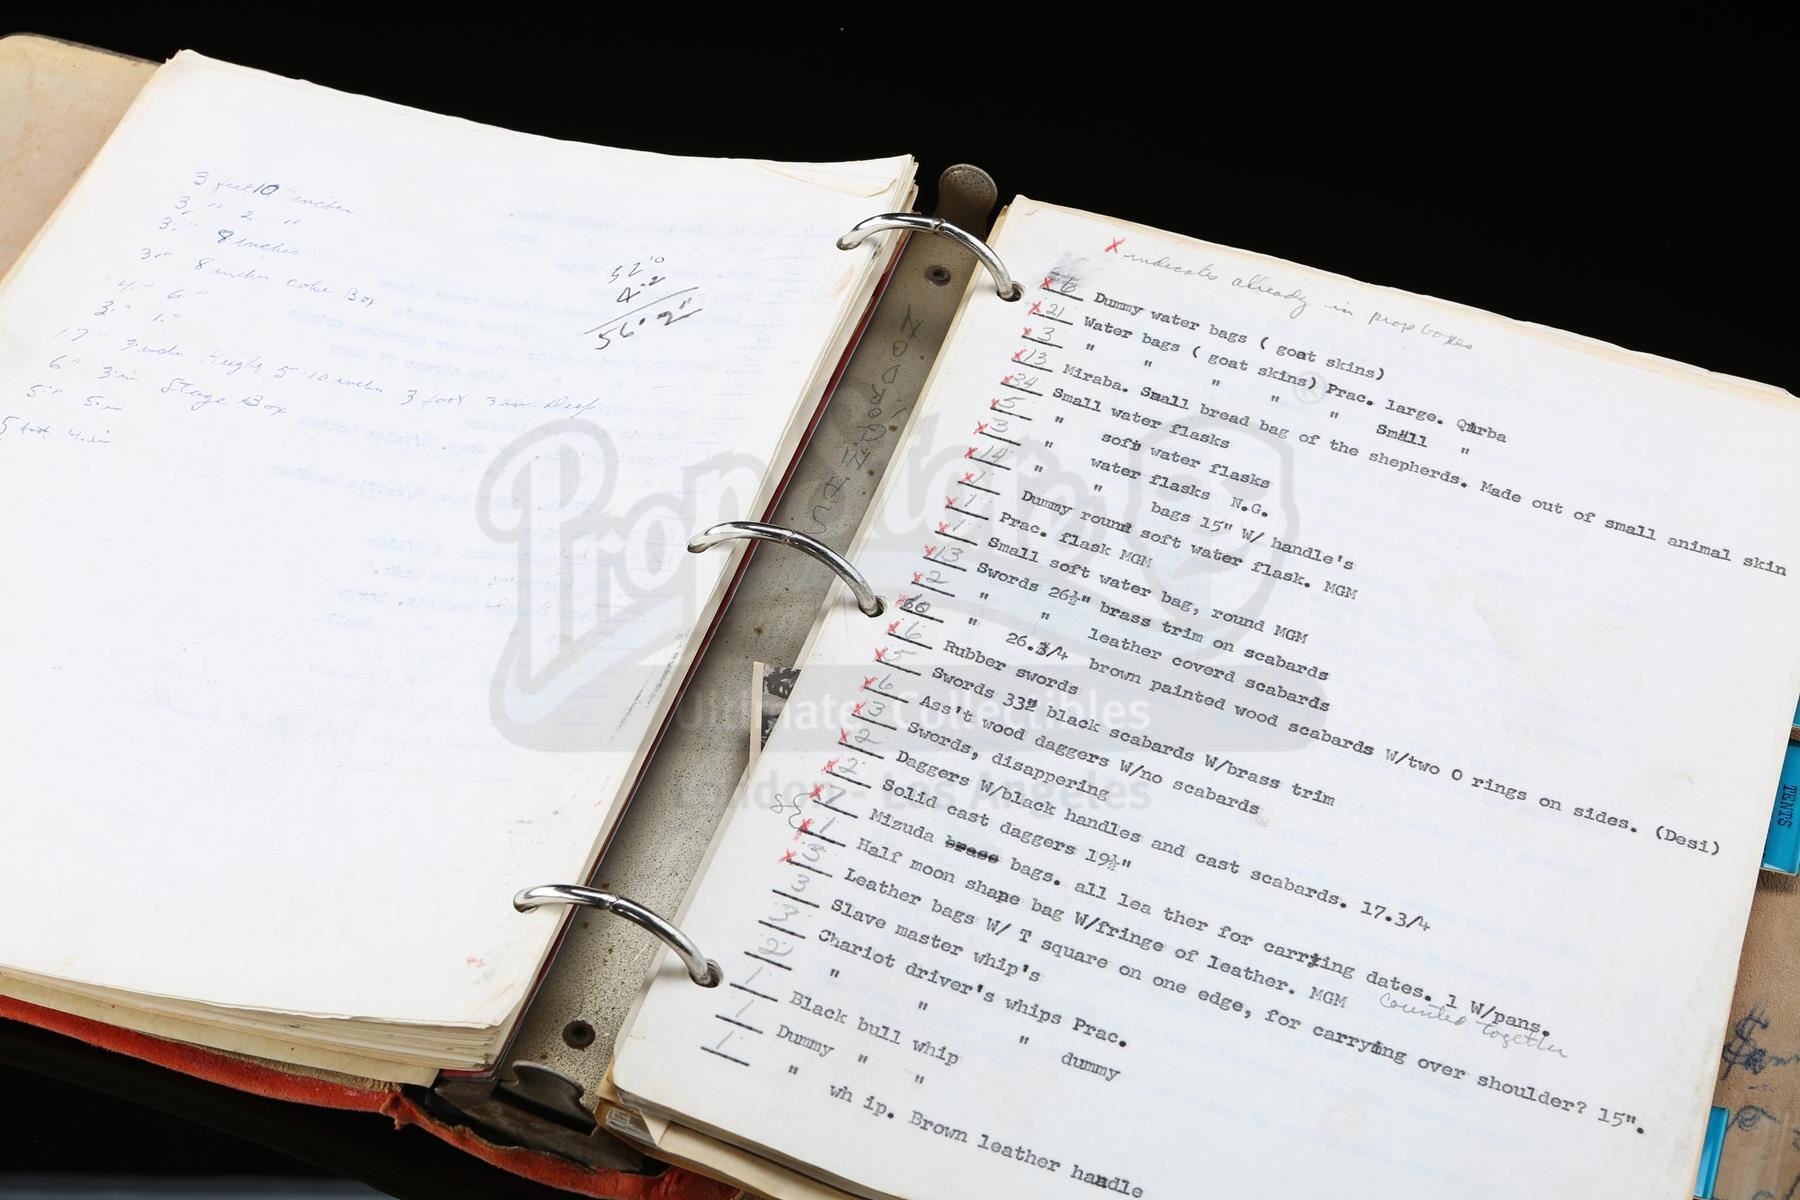 3 feet 10 "inches
3 " 2 "
3 " 8 inches
3 " 8 inches coke Box
4 " 6 "
3 " 1 "
17 " 3 inches Height 5 " 10 inches 3 foot 3 in. Deep.
6 " 3 in Stage Box
5 " 5 in
5 foot 4 in
52'0
4.2
56'2"
X indicates already in prop boxes
x 6 Dummy water bags ( goat skins)
x 21 Water bags ( goat skins) Prac. large. Qirba
x 3 " " " " Small "
x 13 Miraba. Small bread bag of the shepherds. Made out of small animal skin
x 34 Small water flasks
x 5 " soft water flasks
x 3 " water flasks N.G.
x 14 " " bags 15" W/ handle's
x 1 Dummy round soft water flask. MGM
x 1 Prac. flask MGM
x 1 Small soft water bag, round MGM
x 13 Swords 26½" brass trim on scabards
x 2 " " leather coverd scabards
x 60 " 26.3/4 brown painted wood scabards W/two O rings on sides. (Desi)
x 6 Rubber swords
x 5 Swords 33" black scabards W/brass trim
x 6 Ass't wood daggers W/no scabards
x 3 Swords, disappering
x 2 Daggers W/black handles and cast scabards. 17.3/4
x 2 Solid cast daggers 19½"
x Mizuda brass bags. all lea ther for carrying dates. 1 W/pans.
x 1 Half moon shape bag W/fringe of leather. MGM Counted together
x 3 Leather bags W/ T square on one edge, for carrying over shoulder? 15".
3 Slave master whip's
3 Chariot driver's whips Prac.
2 " " " dummy
1 Black bull whip
1 Dummy " "
1 " wh ip. Brown leather handle
TENTS
PropStore
®
Ultimate Collectibles
London - Los Angeles